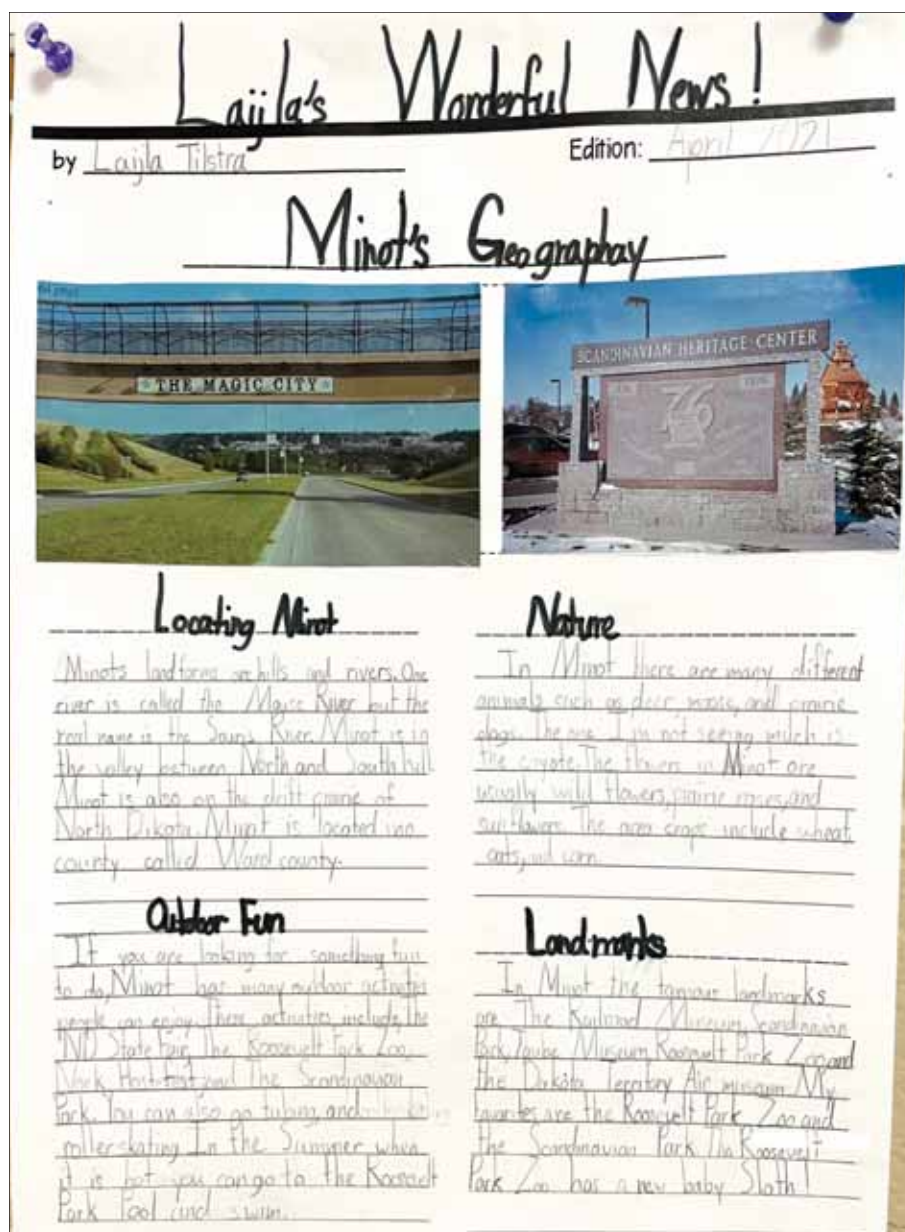 Laijla's Wonderful News!
by Laijla Tilstra
Edition: April 2021
Minot's Geographay
THE MAGIC CITY
SCANDINAVIAN HERITAGE CENTER
76
Locating Minot
Minots landforms are hills and rivers. One
river is called the Mouse River but the
real name is the Souris River. Minot is in
the valley between North and South hill.
Minot is also on the drift prairie of
North Dikota. Minot is located inn
county called Ward county.
Outdoor Fun
If you are looking for something fun
to do, Minot has many outdoor activities
people can enjoy. These activities include, the
ND State Fair, The Roosevelt Park Zoo,
Norsk Hostfest, and The Scandinavian
Park. You can also go tubing, and
rollerskating. In the Summer when
it is hot you can go to the Roosevelt
Park Pool and swim.
Nature
In Minot there are many different
animals such as deer, moose, and prairie
dogs. The one I'm not seeing much is
the coyote. The flowers in Minot are
usually wild flowers, prairie roses, and
sunflowers. The area crops include wheat,
oats, and corn.
Landmarks
In Minot the famous landmarks
are The Railroad Museum, Scandinavian
Park, Taube Museum, Roosevelt Park Zoo, and
the Dakota Territory Air museum. My
favorites are the Roosevelt Park Zoo and
the Scandinavian Park. Tha Roosevelt
Park Zoo has a new baby Sloth!